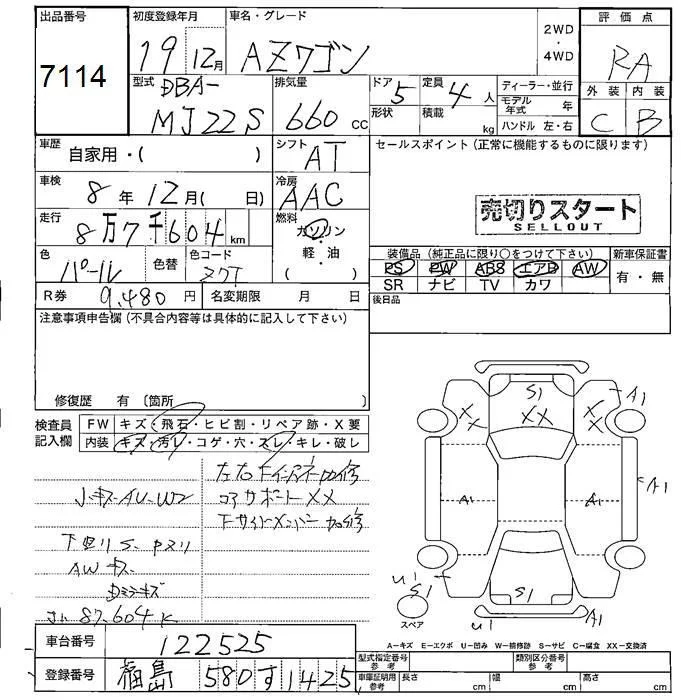 出品番号
7114
初度登録年月
19 12月
車名・グレード
AZワゴン
2WD
・
4WD
評価点
RA
外装 内装
C B
型式
DBA-
MJ22S
排気量
660 cc
ドア 5
形状
定員 4 人
積載 kg
ディーラー・並行
モデル年式 年
ハンドル 左・右
車歴
自家用・( )
シフト
AT
セールスポイント (正常に機能するものに限ります)
車検
8年 12月( 日)
冷房
AAC
売切りスタート
SELLOUT
走行
8万7千604 km
燃料
ガソリン
・
軽・油
( )
色
パール
色替
色コード
装備品 (純正品に限り○をつけて下さい)
新車保証書
PS PW ABS エアB AW
SR ナビ TV カワ
有・無
R券 9,480円
名変期限 月 日
後日品
注意事項申告欄 (不具合内容等は具体的に記入して下さい)
修復歴 有 〔箇所 〕
検査員
記入欄
FW キズ・飛石・ヒビ割・リペア跡・X要
内装 キズ・汚レ・コゲ・穴・スレ・キレ・破レ
コアサポートXX
下サイドメンバー加修
AWキズ
87,604K
S1
XX
XX
XX
A1
A1
A1
A1
S1
U1
S1
スペア
U1
A1
A-キズ E-エクボ U-凹み W-補修跡 S-サビ C-腐食 XX-交換済
車台番号
122525
登録番号
福島 580 す 1425
型式指定番号
参考
類別区分番号
参考
車庫証明用
参考
長さ cm
幅 cm
高さ cm